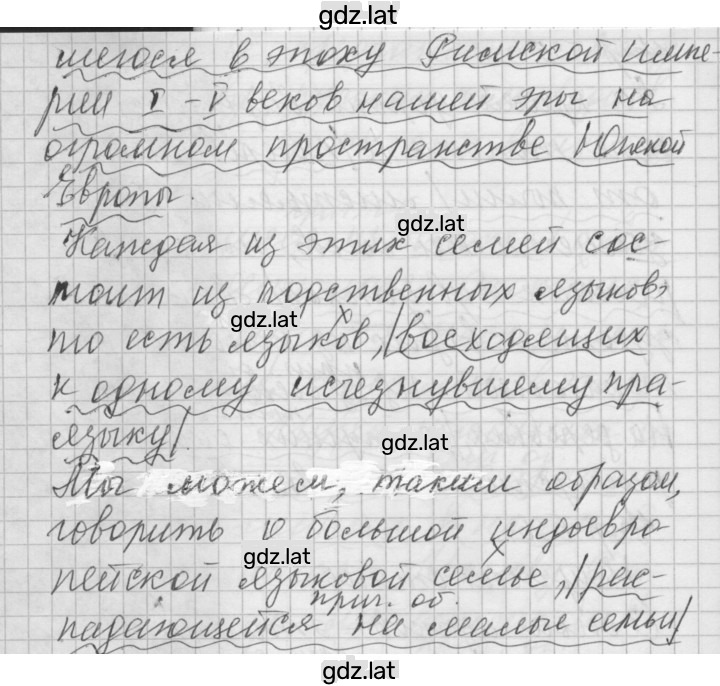 gdz.lat
шегося в эпоху Римской импе-
рии I - V веков нашей эры на
огромном пространстве Южной
Европы.
gdz.lat
Каждая из этих семей сос-
тоит из родственных языков,
gdz.lat х
то есть языков, |восходящих
к одному исчезнувшему пра-
языку|.
gdz.lat
Мы можем, таким образом,
говорить о большой индоевро
gdz.lat х
пейской языковой семье, |рас-
прич. об.
падающейся на малые семьи|
gdz.lat